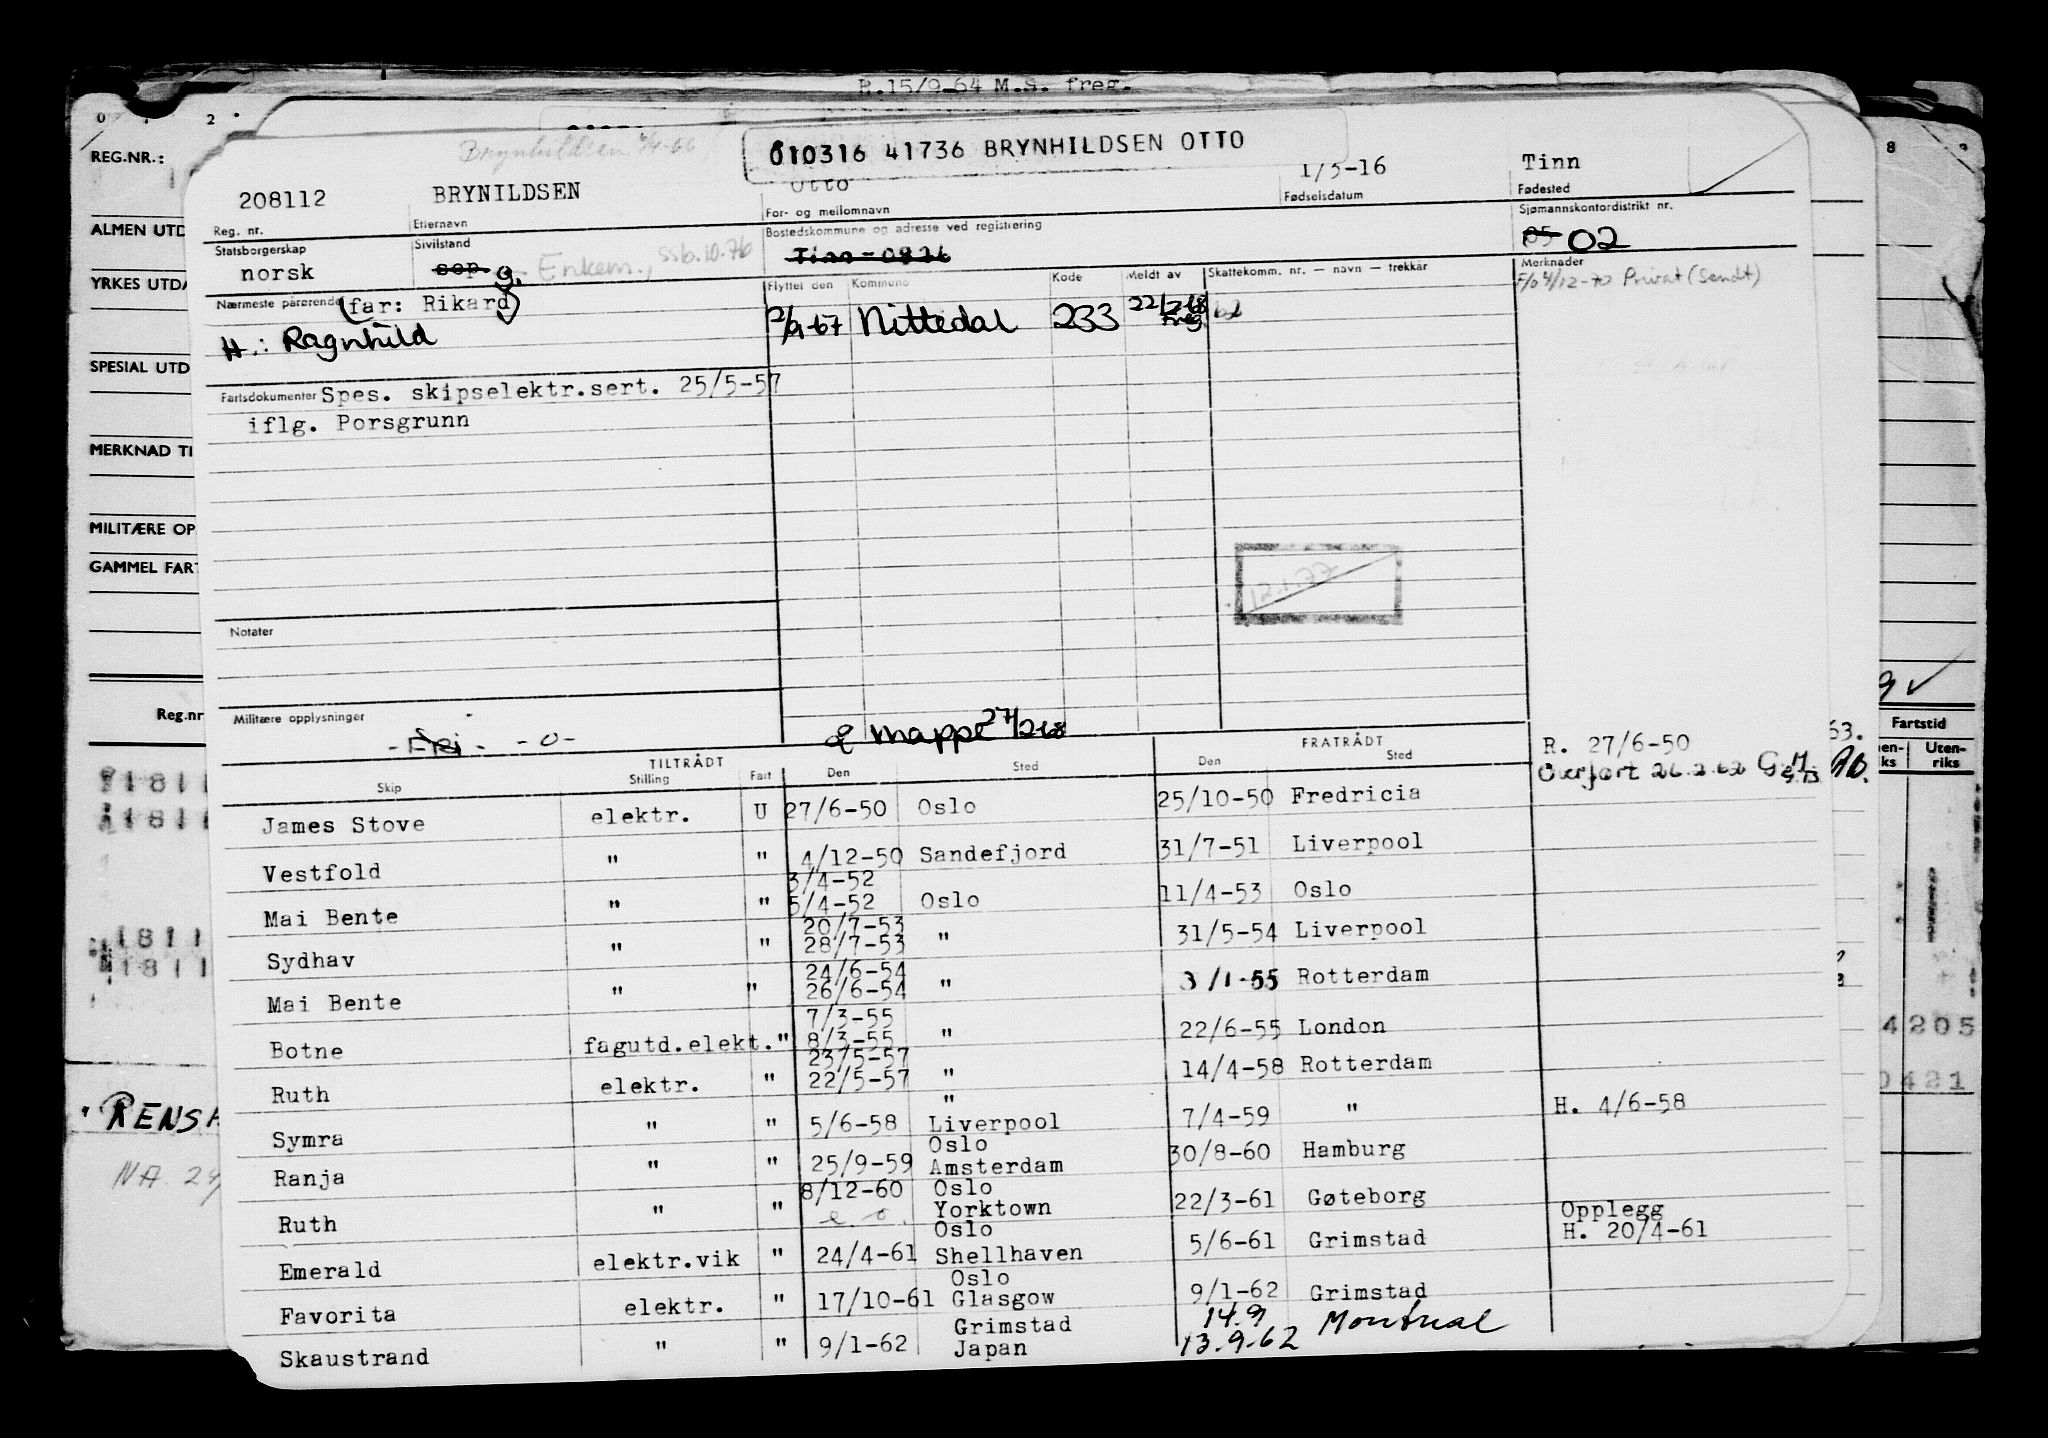 R.15/9-64 M.S. freg.
0 1 2
REG.NR.:
ALMEN UTD
YRKES UTDA
SPECIAL UTD
MERKNAD TI
MILITÆRE OP
GAMMEL FART
Reg.nr
RENSA
NA.
8
Fartstid
Uten-
riks
4205
0421
Brynhildsen 6/4-66
010316 41736 BRYNHILDSEN OTTO
208112 BRYNILDSEN Otto 1/3-16 Tinn
Reg. nr. Etternavn For- og mellomnavn Fødselsdatum Fødested
Statsborgerskap Sivilstand Bostedskommune og adresse ved registrering Sjømannskontordistrikt nr.
norsk sep g. Enkem., ssb.10.76 Tinn-0826 05 02
Nærmeste pårørende (far: Rikard) Flyttet den Kommune Kode Meldt av Skattekomm. nr. — navn — trekkår Merknader
F/o 4/12-70 Privat (Sendt)
H.: Ragnhild 2/9-67 Nittedal 233 22/2-68 Freg.
Fartsdokumenter Spes. skipselektr.sert. 25/5-57
iflg. Porsgrunn
12.1.77
Notater
Militære opplysninger
-Fri- -0- mappe 27/2-68
TILTRÅDT FRATRÅDT R. 27/6-50
Skip Stilling Fart Den Sted Den Sted Overført 26.2.62
James Stove elektr. U 27/6-50 Oslo 25/10-50 Fredricia
Vestfold " " 4/12-50 Sandefjord 31/7-51 Liverpool
3/4-52
Mai Bente " " 5/4-52 Oslo 11/4-53 Oslo
20/7-53
Sydhav " " 28/7-53 " 31/5-54 Liverpool
24/6-54
Mai Bente " " 26/6-54 " 3/1-55 Rotterdam
7/3-55
Botne fagutd.elekt. " 8/3-55 " 22/6-55 London
23/5-57
Ruth elektr. " 22/5-57 " 14/4-58 Rotterdam
"
Symra " " 5/6-58 Liverpool 7/4-59 " H. 4/6-58
Oslo
Ranja " " 25/9-59 Amsterdam 30/8-60 Hamburg
8/12-60 Oslo
Ruth " " Yorktown 22/3-61 Gøteborg Opplegg
Oslo H. 20/4-61
Emerald elektr.vik " 24/4-61 Shellhaven 5/6-61 Grimstad
Oslo
Favorita elektr. " 17/10-61 Glasgow 9/1-62 Grimstad
Grimstad 14.9
Skaustrand " " 9/1-62 Japan 13.9.62 Montreal